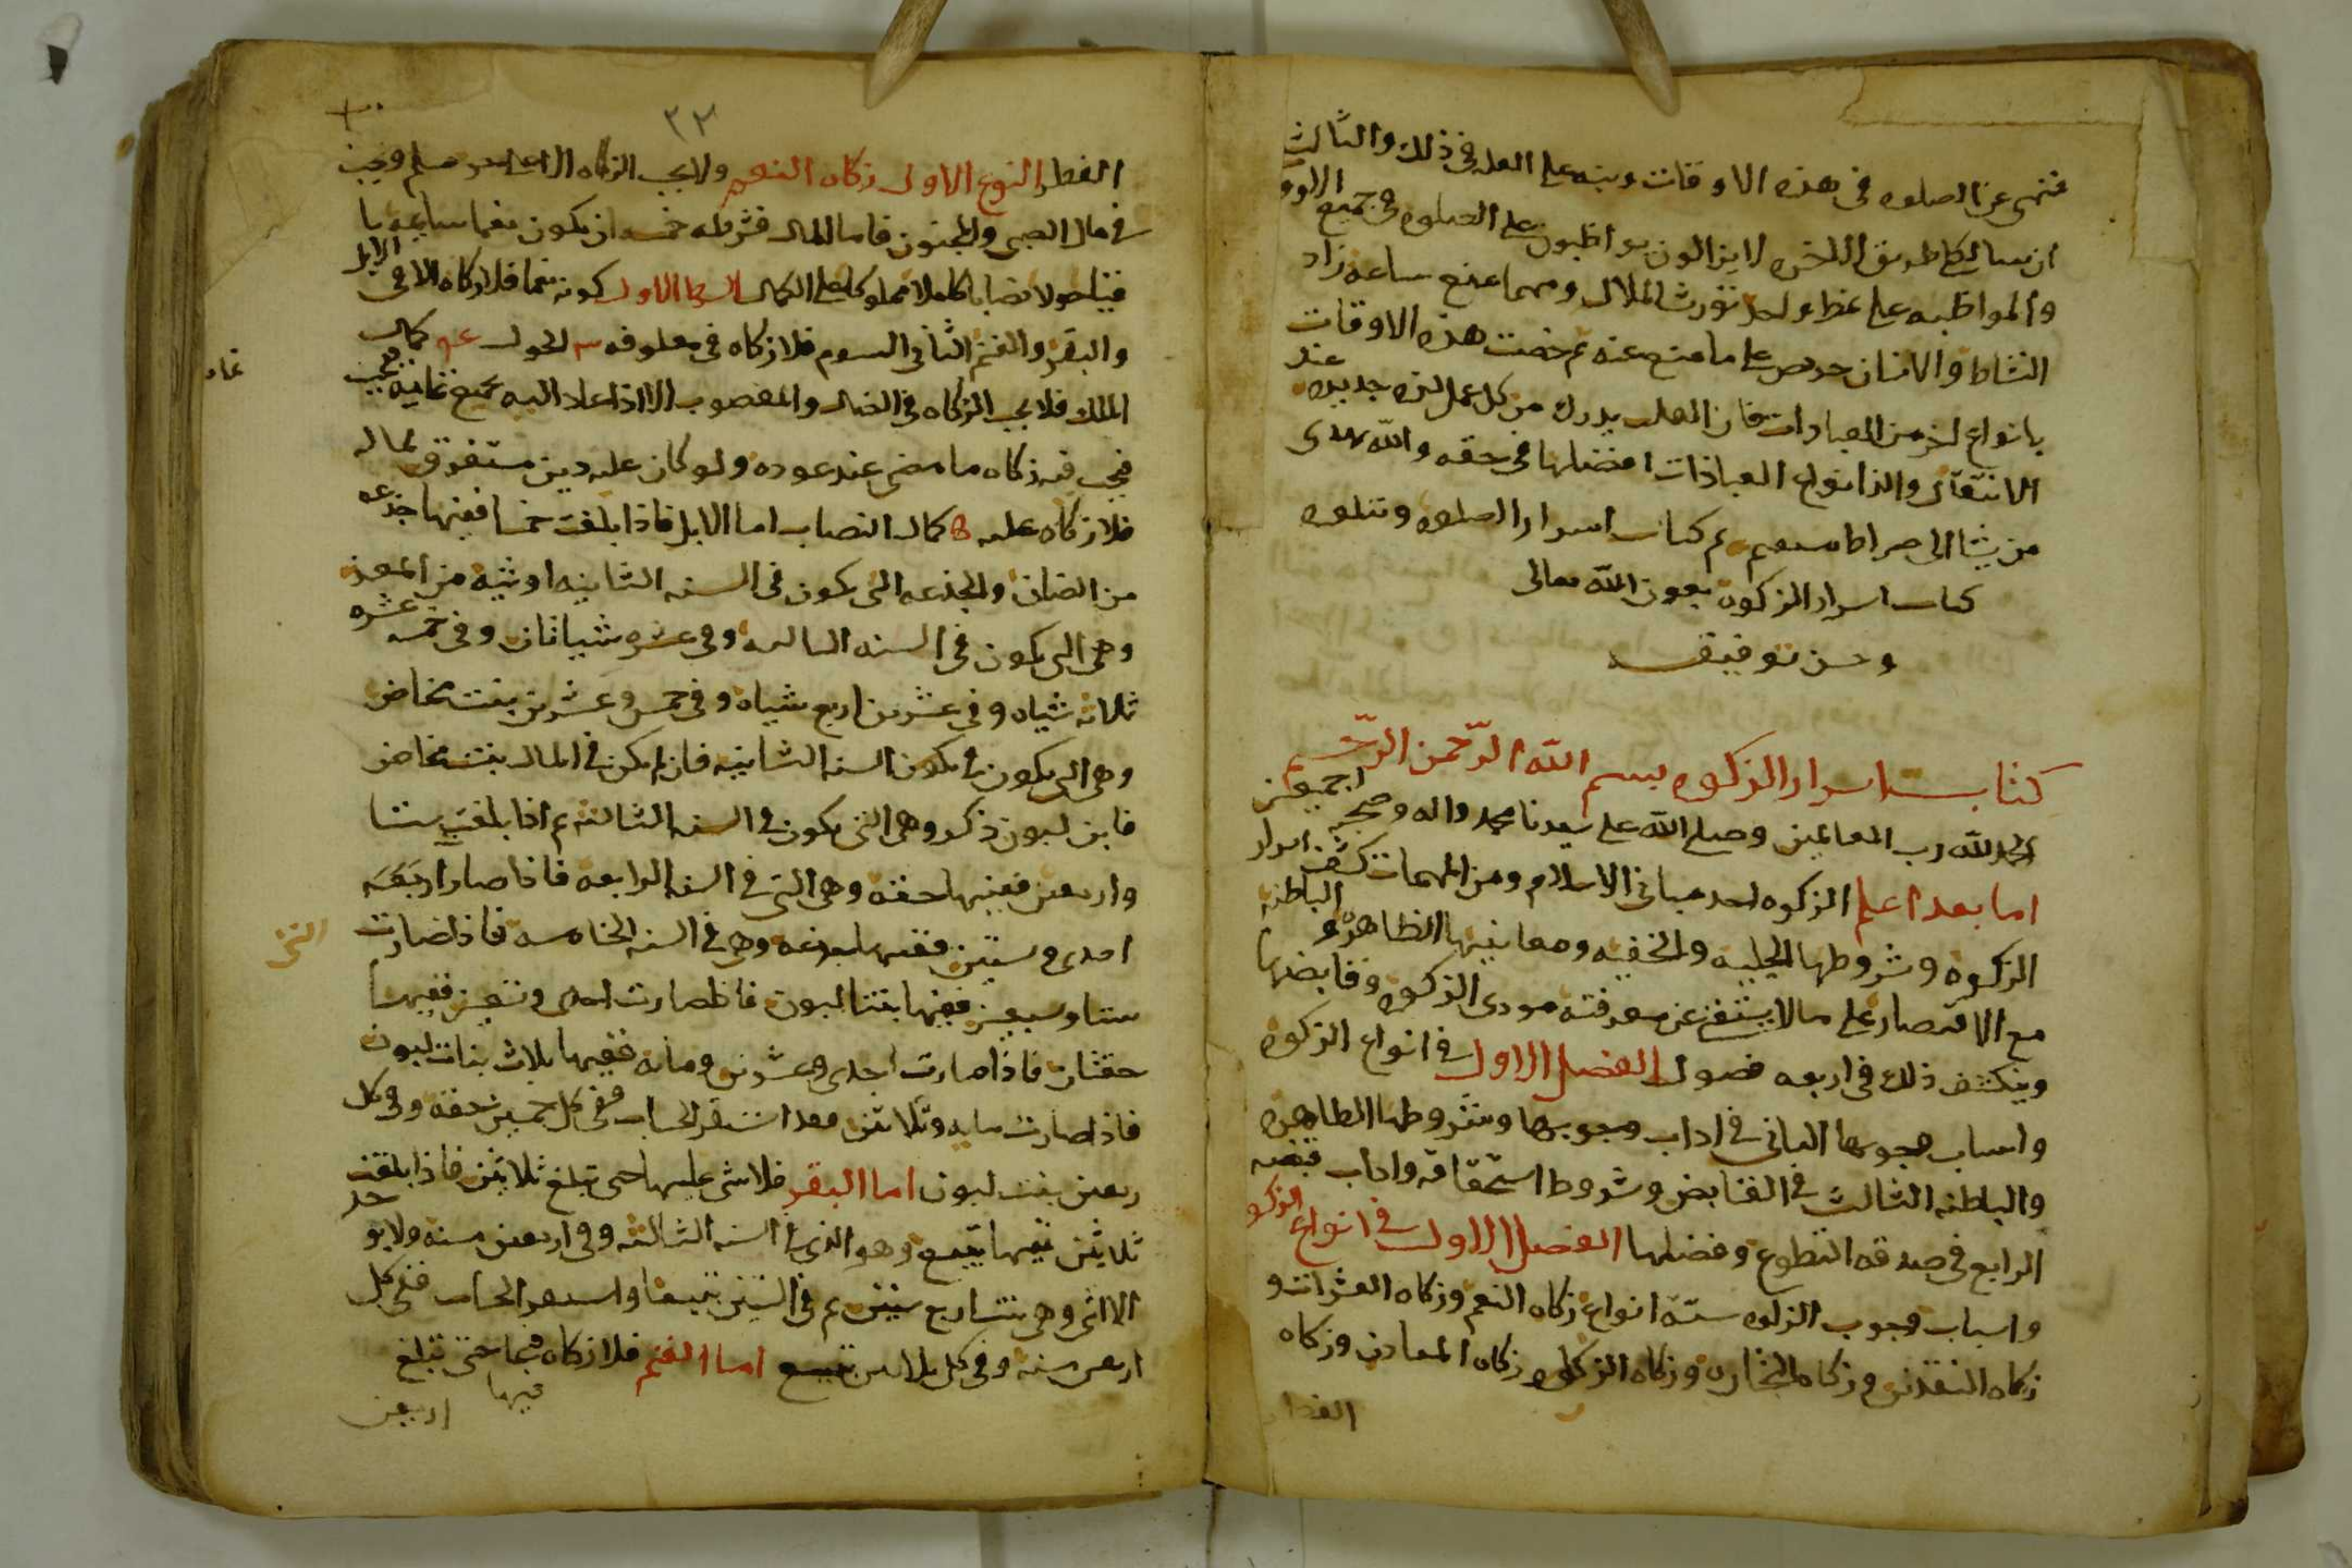 فنهى عن الصلوه فى هذه الاوقات وينبه على العله فى ذلك والثالث
ان سالكى طريق الاخره لا يزالون يواظبون على الصلوه فى جميع الاوقا
والمواظبه على نمط واحد تورث الملال ومهما منع ساعه زاد
النشاط والانسان حريص على ما منع عنه ثم خصت هذه الاوقات
بانواع اخر من العبادات فان القلب يدرك من كل عمل لذه جديده عند
الانتقال والذ انواع العبادات افضلها فى حقه والله يهدى
من يشا الى صراط مستقيم تم كتاب اسرار الصلوه ويتلوه
كتاب اسرار الزكوه بعون الله تعالى
وحسن توفيقه
كتاب اسرار الزكوه بسم الله الرحمن الرحيم
الحمد لله رب العالمين وصلى الله على سيدنا محمد واله وصحبه اجمعين
اما بعد اعلم الزكوه احد مبانى الاسلام ومن المهمات كشف اسرار
الزكوه وشروطها الجليه والخفيه ومعانيها الظاهره و الباطنه
مع الاقتصار على ما لا يستغنى عن معرفته مودى الزكوه وقابضها
وينكشف ذلك فى اربعه فصول الفصل الاول فى انواع الزكوه
واسباب وجوبها الثانى فى اداب وجوبها وشروطها الظاهره
والباطنه الثالث فى القابض وشروط استحقاقه واداب قبضه
الرابع فى صدقه التطوع وفضلها الفصل الاول فى انواع الزكو
واسباب وجوب الزكوه سته انواع زكاه النعم وزكاه العشرات و
زكاه النقدين وزكاه التجاره وزكاه الركاز وزكاه المعادن وزكاه
الفطر
٣٢
الفطر النوع الاول زكاه النعم ولا يجب الزكاه الا على حر مسلم وتجب
فى مال الصبى والمجنون فاما المال فشرطه خمسه ان يكون نعما سايمه با
قيا حولا نصابا كاملا مملوكا على الكمال الشرط الاول كونه نعما فلا زكاه الا فى الابل
والبقر والغنم الثانى السوم فلا زكاه فى معلوفه الحول كمال
الملك فلا يجب الزكاه فى الضال والمغصوب الا اذا عاد اليه بجميع نمايه فتجب
نما
فيجب فيه زكاه ما مضى عند عوده ولو كان عليه دين مستغرق لماله
فلا زكاه عليه كمال النصاب اما الابل فاذا بلغت خمسا ففيها جذعه
من الضان والجذعه التى تكون فى السنه الثانيه او ثنيه من المعز
وهى التى تكون فى السنه الثالثه وفى عشره شياتان وفى خمسه عشره
ثلاثه شياه وفى عشرين اربع شياه وفى خمس وعشرين بنت مخاض
وهى التى يكون فى السنه الثانيه فان لم يكن فى المال بنت مخاض
فابن لبون ذكر وهى التى تكون فى السنه الثالثه ثم اذا بلغت ستا
واربعين ففيها حقه وهى التى فى السنه الرابعه فاذا صار اربعه
احدى وستين ففيها جذعه وهى فى السنه الخامسه فاذا صارت
التى
ستا وسبعين ففيها بنتا لبون فاذا صارت احدى وتسعين ففيها
حقتان فاذا صارت احدى وعشرين ومائه ففيها ثلاث بنات لبون
فاذا صارت مايه وثلاثين فقد استقر الحساب ففى كل خمسين حقه وفى كل
ربعين بنت لبون اما البقر فلا شى عليها حتى تبلغ ثلاثين فاذا بلغت
ثلاثين ففيها تبيع وهو الذى فى السنه الثالثه وفى اربعين مسنه ولا يو خذ
الا انثى وهى بنت اربع سنين ثم فى الستين تبيعا واستقر الحساب ففى كل
اربعين مسنه وفى كل ثلاثين تبيع اما الغنم فلا زكاه فيها حتى تبلغ
فيها
اربعين